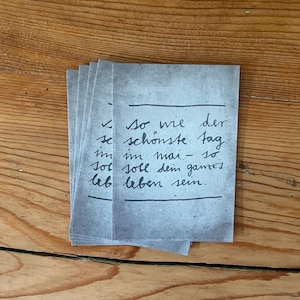 so wie der
schönste tag
im mai – so
soll dein ganzes
leben sein.